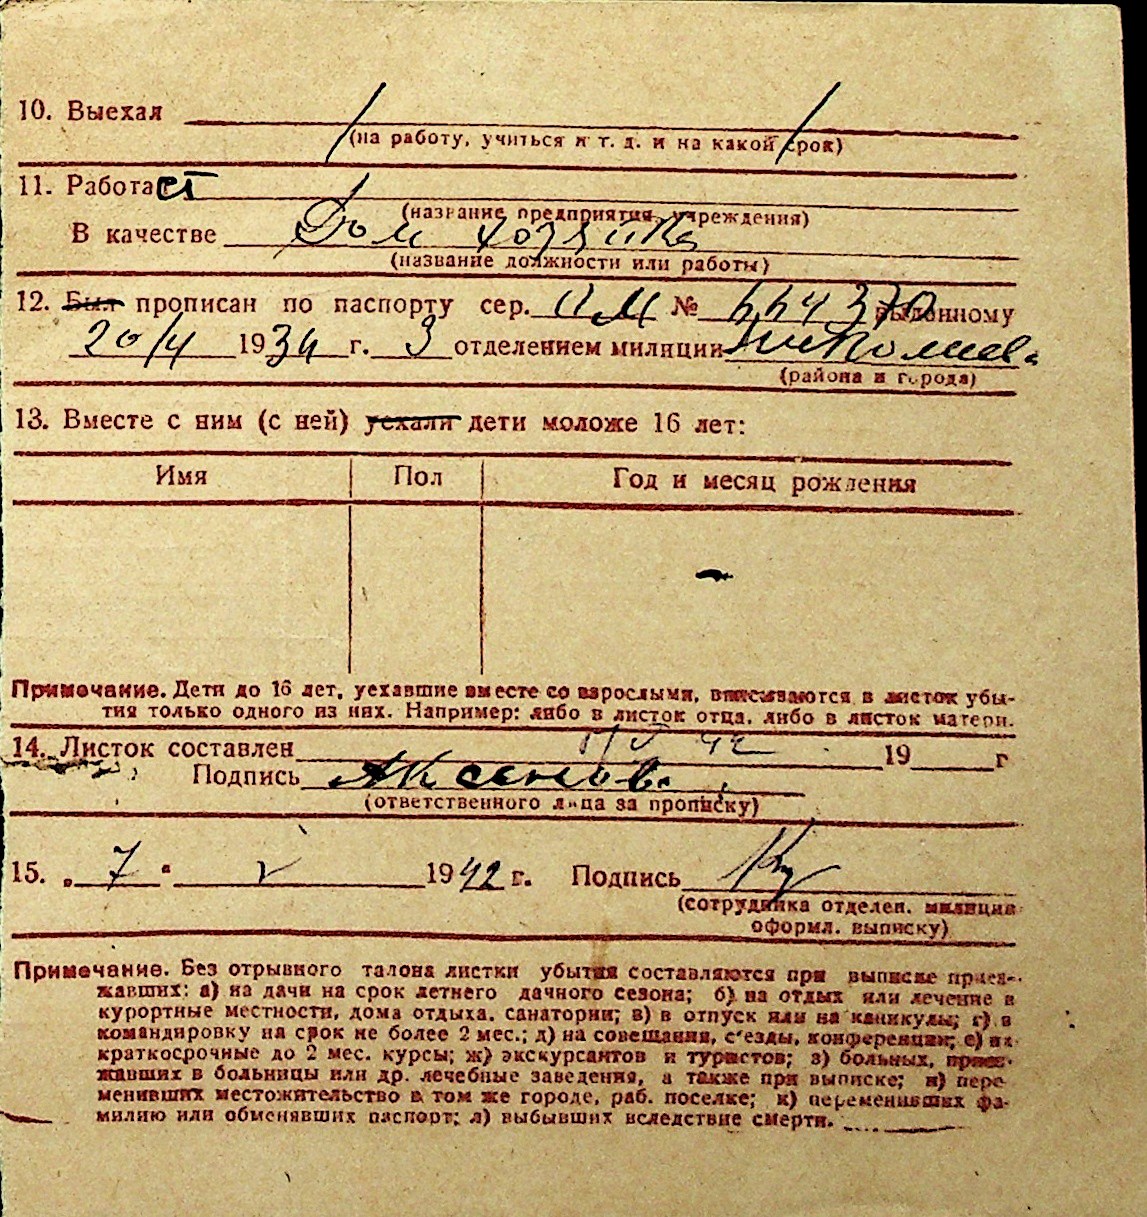 10. Выехал
(на работу, учиться и т. д. и на какой срок)
11. Работает
(название предприятия, учреждения)
В качестве Дом хозяйка
(название должности или работы)
12. Был прописан по паспорту сер. № выданному
20/4 1934 г. 3 отделением милиции
(района и города)
13. Вместе с ним (с ней) уехали дети моложе 16 лет:
Имя Пол Год и месяц рождения
Примечание. Дети до 16 лет, уехавшие вместе со взрослыми, вписываются в листок убы-
тия только одного из них. Например: либо в листок отца, либо в листок матери.
14. Листок составлен 19 г
Подпись Аксенова
(ответственного лица за прописку)
15. „ 7 " V 1942 г. Подпись
(сотрудника отделен. милиции
оформл. выписку)
Примечание. Без отрывного талона листки убытия составляются при выписке приез-
жавших: а) на дачи на срок летнего дачного сезона; б) на отдых или лечение в
курортные местности, дома отдыха, санатории; в) в отпуск или на каникулы; г) в
командировку на срок не более 2 мес.; д) на совещания, с'езды, конференции; е) на
краткосрочные до 2 мес. курсы; ж) экскурсантов и туристов; з) больных, приез-
жавших в больницы или др. лечебные заведения, а также при выписке; и) пере-
менивших местожительство в том же городе, раб. поселке; к) переменивших фа-
милию или обменявших паспорт; л) выбывших вследствие смерти.